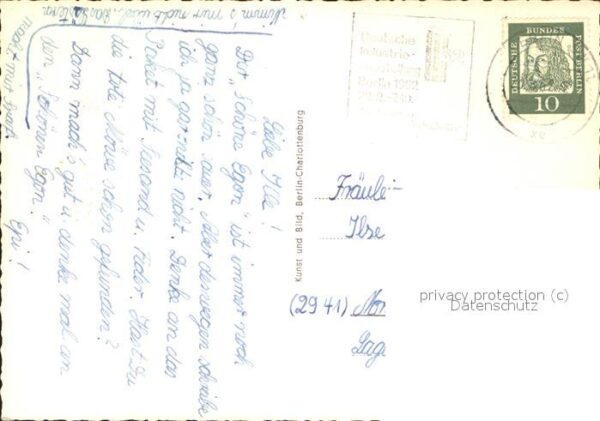 Liebe Ilse!
Der "schöne Egon" ist immer noch
ganz schön sauer. Aber deswegen schreibe
ich ja gar nicht. Denke an das
Paket mit Seesand u. Feder. Hast Du
die tote Möwe schon gefunden?
Dann mach's gut u. denke mal an
den "schönen Egon".
Epi!
Nimm's mir nicht übel, das
macht mir Spaß
Kunst und Bild, Berlin-Charlottenburg
Deutsche
Industrie-
ausstellung
Berlin 1962
DEUTSCHE BUNDESPOST BERLIN
10
Fräulein
Ilse
(2941)
privacy protection (c)
Datenschutz